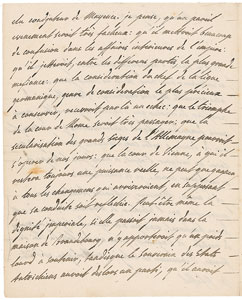 du coadjuteur de Mayence. je pense, qu'un pareil
evenement seroit très facheux: qu'il mettroit beaucoup
de confusion dans les affaires intérieures de l'empire:
qu'il jetteroit, entre les différens partis, la plus grande
méfiance: que la considération du chef de la ligue
germanique, genre de considération le plus précieux
a conserver, recevroit par là un echec: que le triomphe
de la cour de Rome seroit très passager; que la
secularisation des grands sièges de l'Allemagne pourroit
s'opérer de nos jours: que la cour de Vienne, à qui il
restera toujours une puissance reelle, ne peut que gagner
à tous les changemens qui arriveroient, en supposant
que sa conduite soit réfléchie. Peut-être même la
dignité impériale, si elle passoit jamais dans la
maison de Brandebourg, n'y apporteroit qu'un poids
lourd à soutenir, tandisque le souverain des Etats
Autrichiens auroit dislors un parti, qu'il auroit